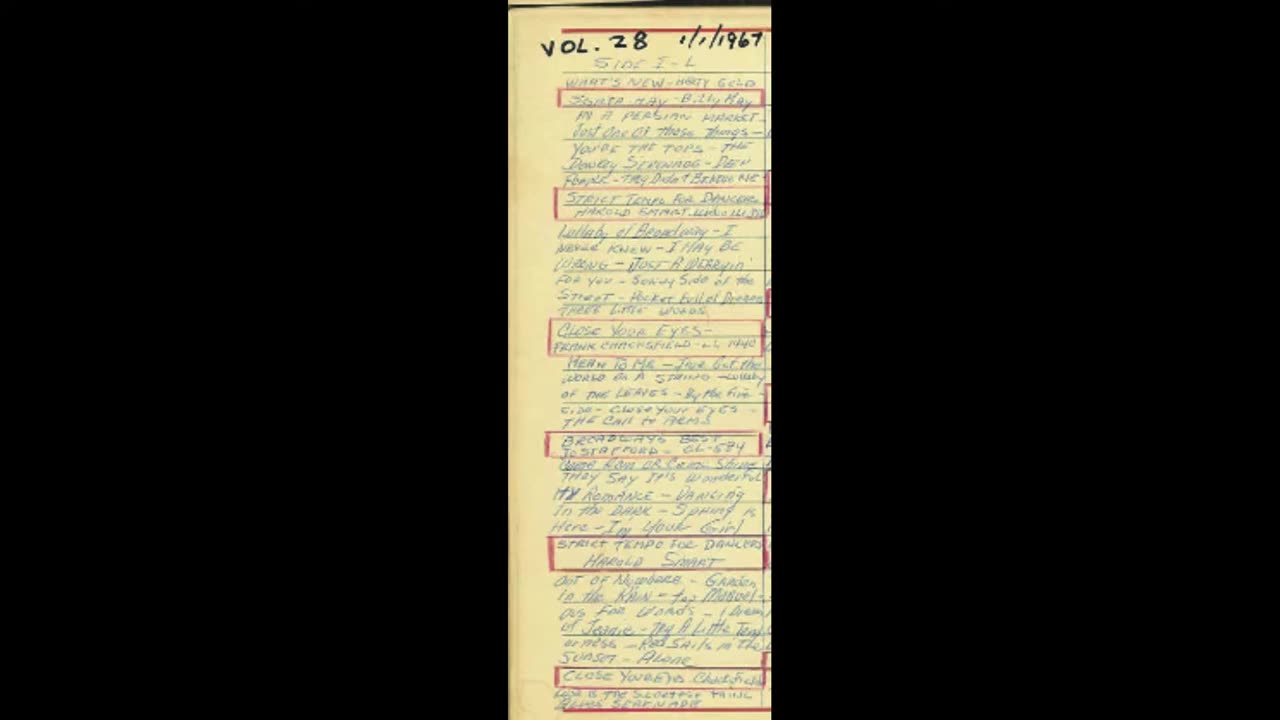 VOL. 28 1/1/1967
SIDE I - L
WHAT'S NEW - MORTY GOLD
SORTA-MAY - Billy MAY
IN A PERSIAN MARKET -
Just One Of Those Things -
YOU'RE THE TOPS - THE
Donkey SERENADE - DEEP
PURPLE - They Didn't BELIEVE ME -
STRICT TEMPO FOR DANCERS
HAROLD SMART
Lullaby of Broadway - I
NEVER KNEW - I MAY BE
WRONG - JUST A WEARYIN'
FOR YOU - Sunny Side of the
STREET - Pocket Full of Dreams
THREE LITTLE WORDS
CLOSE YOUR EYES -
FRANK CHACKSFIELD - LL 1440
MEAN TO ME - I've Got the
WORLD ON A STRING - Lullaby
OF THE LEAVES - By the Fire -
SIDE - CLOSE YOUR EYES -
THE CALL to ARMS
BROADWAY'S BEST
JO STAFFORD - CL-584
COME RAIN OR COME SHINE
THEY SAY IT'S Wonderful
MY ROMANCE - DANCING
In the DARK - SPRING is
Here - I'm Your Girl
STRICT TEMPO FOR DANCERS
HAROLD SMART
OUT OF NOWHERE - GARDEN
In the RAIN - Too MARVEL -
OUS FOR WORDS - I Dream
of Jeanie - Try A Little Tend
ERNESS - RED SAILS in The
SUNSET - ALONE
CLOSE YOUR EYES Chacksfield
LOVE IS THE SWEETEST THING
SERENADE